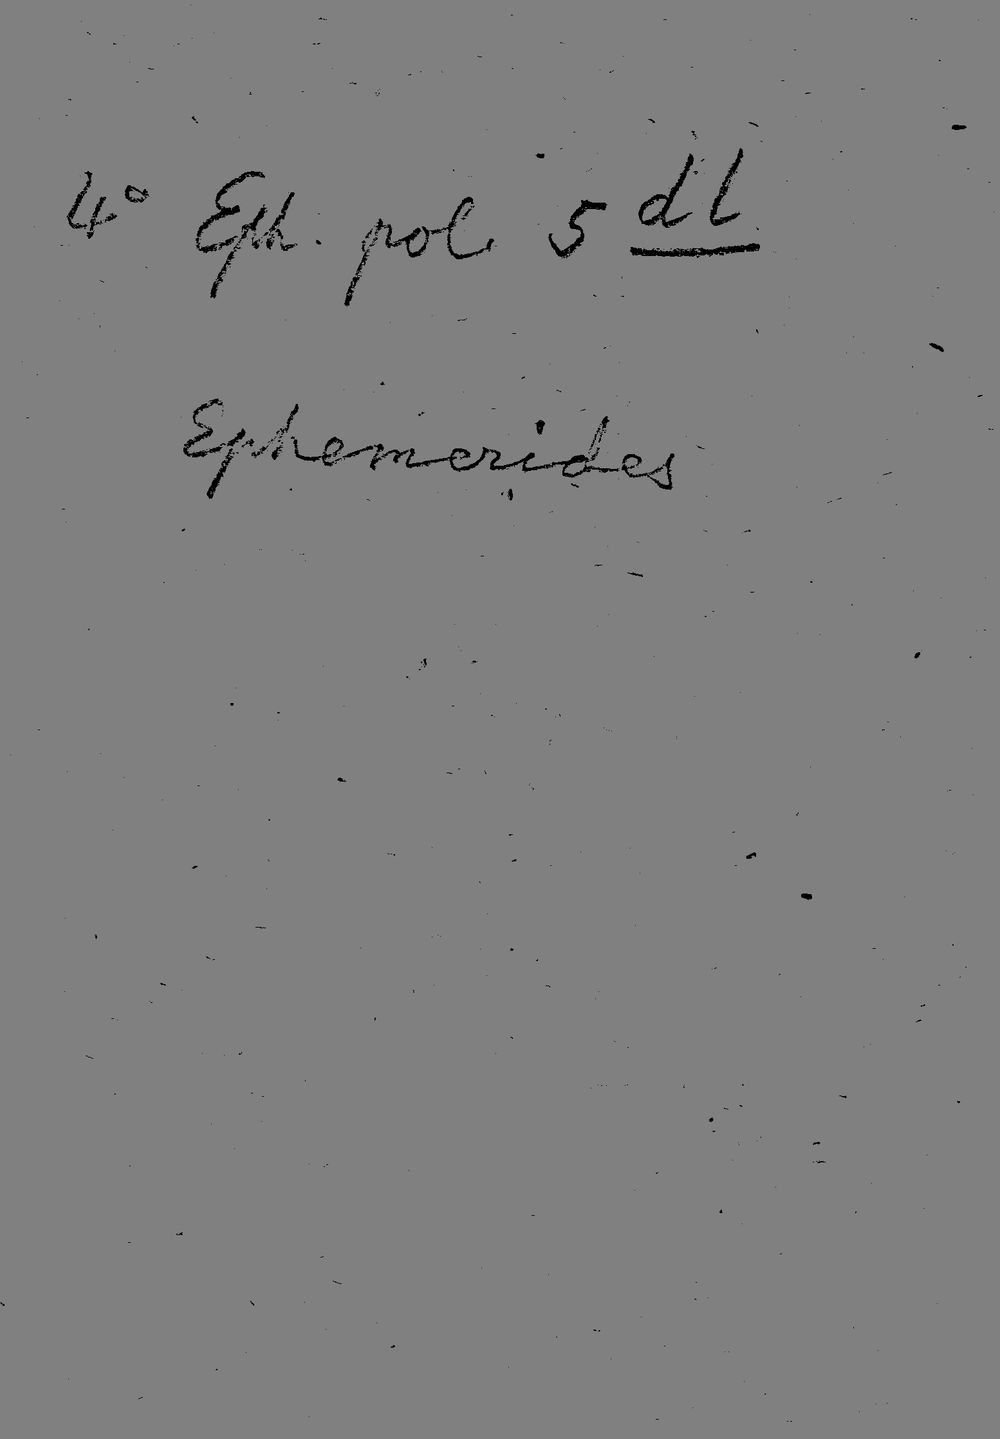 4° Eph. pol. 5 dl
Ephemerides